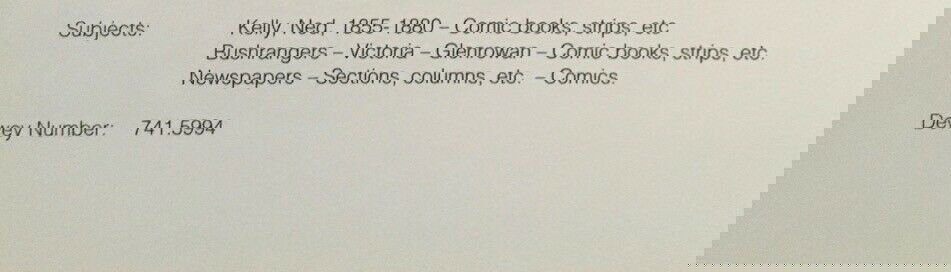 Subjects: Kelly, Ned, 1855-1880 – Comic books, strips, etc.
Bushrangers – Victoria – Glenrowan – Comic books, strips, etc.
Newspapers – Sections, columns, etc. – Comics.
Number: 741.5994